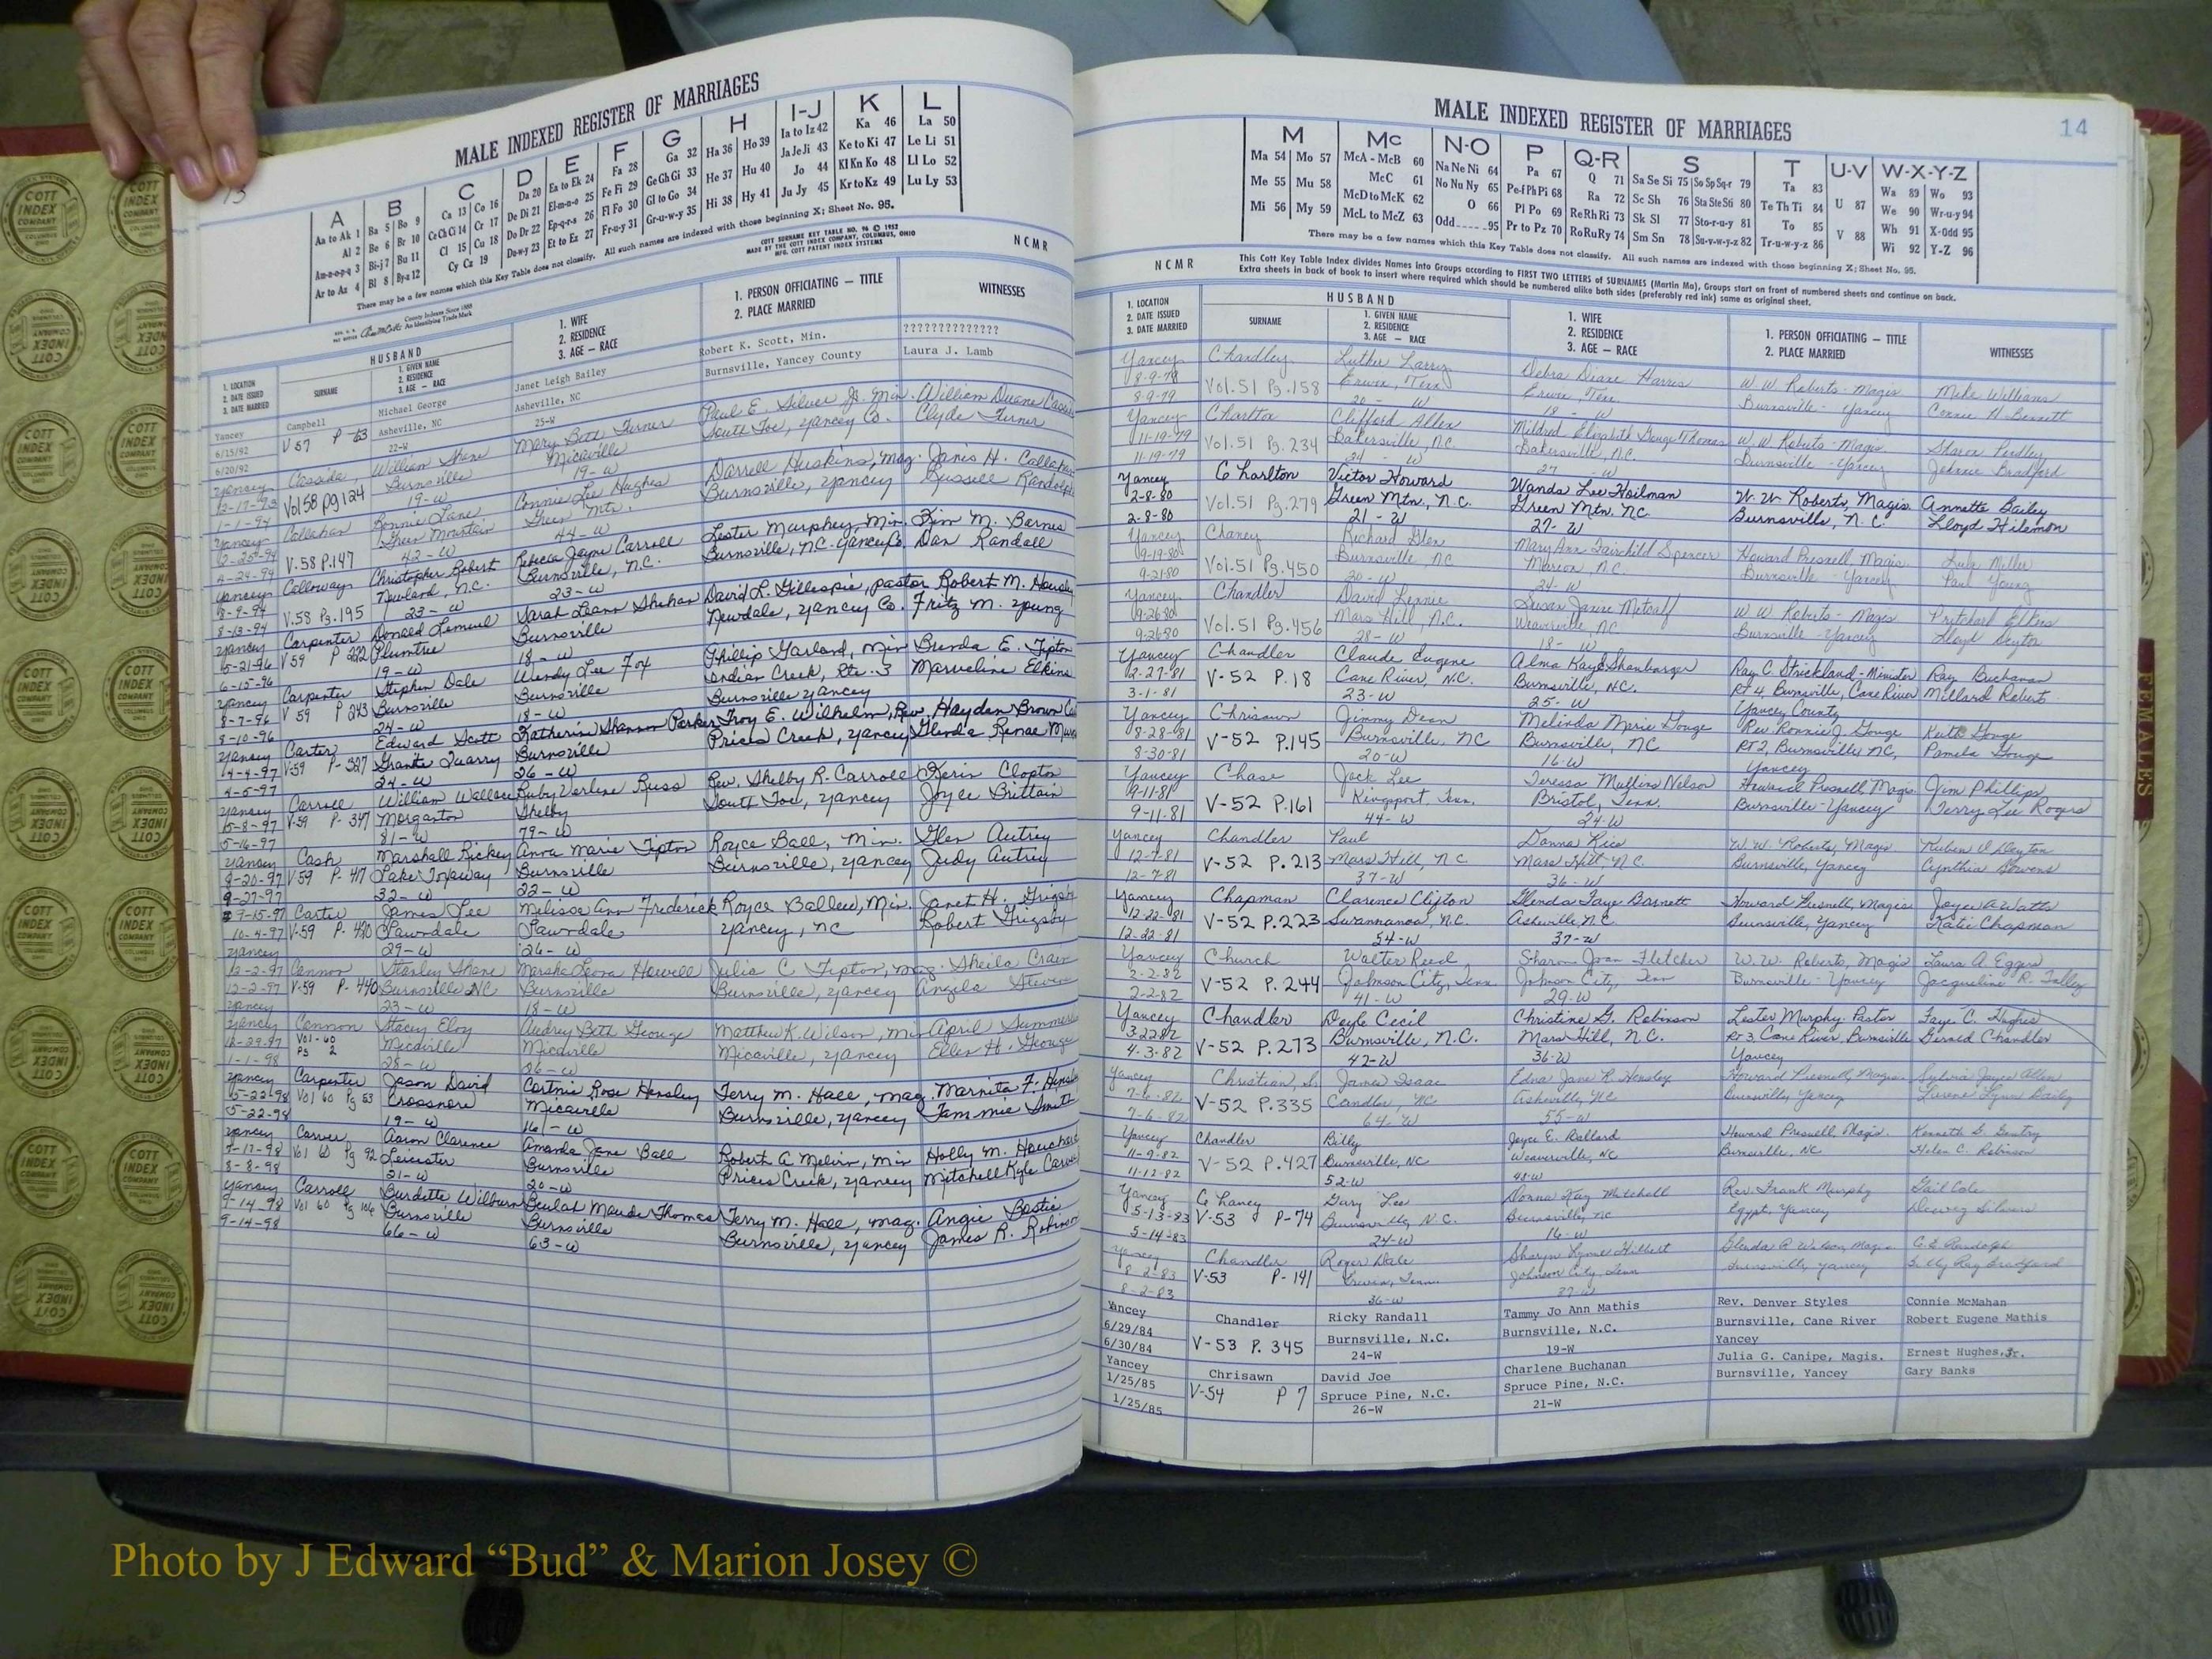 13
MALE INDEXED REGISTER OF MARRIAGES
A B C D E F G H I-J K L
Aa to Ak 1 Ba 5 Bo 9 Ca 13 Co 16 Da 20 Ea to Ek 24 Fa 28 Ga 32 Ha 36 Ho 39 Ia to Iz 42 Ka 46 La 50
Al 2 Be 6 Br 10 Ce Ch Ci 14 Cr 17 De Di 21 El-m-n-o 25 Fe Fi 29 Ge Gh Gi 33 He 37 Hu 40 Ja Je Ji 43 Ke to Ki 47 Le Li 51
Am-n-o-p-q 3 Bi-j 7 Bu 11 Cl 15 Cu 18 Do Dr 22 Ep-q-r-s 26 Fl Fo 30 Gl to Go 34 Hi 38 Hy 41 Jo 44 Kl Kn Ko 48 Ll Lo 52
Ar to Az 4 Bl 8 By-z 12 Cy Cz 19 Du-w-y 23 Et to Ez 27 Fr-u-y 31 Gr-u-w-y 35 Ju Jy 45 Kr to Kz 49 Lu Ly 53
There may be a few names which this Key Table does not classify. All such names are indexed with those beginning X; Sheet No. 95.
COTT SURNAME KEY TABLE NO. 96 © 1952
MADE BY THE COTT INDEX COMPANY, COLUMBUS, OHIO
MFG. COTT PATENT INDEX SYSTEMS
NCMR
County Indexes Since 1888
An Identifying Trade Mark
1. LOCATION
2. DATE ISSUED
3. DATE MARRIED
HUSBAND
SURNAME
1. GIVEN NAME
2. RESIDENCE
3. AGE — RACE
1. WIFE
2. RESIDENCE
3. AGE — RACE
1. PERSON OFFICIATING — TITLE
2. PLACE MARRIED
WITNESSES
Yancey Campbell Michael George Janet Leigh Bailey Robert K. Scott, Min. ??????????????
6/15/92 V 57 P 63 Asheville, NC Asheville, NC Burnsville, Yancey County Laura J. Lamb
6/20/92 22-W 25-W
Yancey Cassida, William Shane Mary Beth Turner Paul E. Silver Jr. Min. William Duane
12-17-93 Vol 58 pg 124 Burnsville Micaville South Toe, Yancey Co. Clyde Turner
1-1-94 19-W 19-W
Yancey Callahan Ronnie Lane Connie Lee Hughes Darrell Huskins, Mag. Janis H. Callahan
V.58 P.147 Green Mountain Green Mtn. Burnsville, Yancey Russell Randolph
42-W 44-W
Yancey Calloway Christopher Robert Rebecca Jayne Carroll Lester Murphey, Min. Kim M. Barnes
8-9-94 V.58 Pg.195 Newland, N.C. Burnsville, N.C. Burnsville, NC Yancey Co. Dan Randall
8-13-94 23-W 23-W
Yancey Carpenter Donald Lemuel Sarah Leann Shehan David L. Gillespie, Pastor Robert M.
5-21-96 V59 P 222 Plumtree Burnsville Newdale, Yancey Co. Fritz M. Young
6-15-96 19-W 18-W
Yancey Carpenter Stephen Dale Wendy Lee Fox Phillip Garland, Min Brenda E. Tipton
8-7-96 V 59 P 243 Burnsville Burnsville Indian Creek, Rte. 3 Marveline Elkins
8-10-96 24-W 18-W Burnsville Yancey
Yancey Carter Edward Scott Katherine Shannon Parker Troy E. Wilhelm, Rev. Hayden Brown
4-4-97 V59 P-327 Granite Quarry Burnsville Prices Creek, Yancey Glenda Renae
4-5-97 24-W 26-W
Yancey Carroll William Wallace Ruby Verlene Buss Rev. Shelby R. Carroll Kevin Clopton
5-8-97 V-59 P-347 Morganton Shelby South Toe, Yancey Joyce Brittain
5-16-97 81-W 79-W
Yancey Cash Marshall Rickey Anna Marie Tipton Royce Ball, Min. Glen Autrey
8-20-97 V59 P-417 Lake Toxaway Burnsville Burnsville, Yancey Judy Autrey
9-27-97 32-W 22-W
9-15-97 Carter James Lee Melissa Ann Frederick Royce Ballew, Min. Janet H. Grigsby
10-4-97 V-59 P-420 Lawndale Lawndale Yancey, NC Robert Grigsby
Yancey 29-W 26-W
12-2-97 Cannon Stanley Shane Marsha Leora Howell Julia C Tipton, Mag. Sheila Crain
12-2-97 V-59 P-440 Burnsville NC Burnsville Burnsville, Yancey Angela
Yancey 23-W 18-W
Yancey Cannon Stacey Eloy Audrey Beth George Matthew K. Wilson, Min April Summers
12-29-97 Vol-60 Micaville Micaville Micaville, Yancey Ellen H. George
1-1-98 Pg 2 28-W 26-W
Yancey Carpenter Jason David Cortnie Rose Hensley Terry M. Hall, Mag. Marnita F.
5-22-98 Vol 60 Pg 53 Crossnore Micaville Burnsville, Yancey Tammie Smith
5-22-98 19-W 16-W
Yancey Carver Aaron Clarence Amanda Jane Ball Robert A Melvin, Min Holly M.
7-17-98 Vol 60 Pg 92 Leicester Burnsville Prices Creek, Yancey Mitchell Kyle
8-8-98 21-W 20-W
Yancey Carroll Burdette Wilburn Beulah Maude Thomas Terry M. Hall, Mag. Angie Bostic
9-14-98 Vol 60 Pg 106 Burnsville Burnsville Burnsville, Yancey James R.
9-14-98 66-W 63-W
14
MALE INDEXED REGISTER OF MARRIAGES
M Mc N-O P Q-R S T U-V W-X-Y-Z
Ma 54 Mo 57 McA - McB 60 Na Ne Ni 64 Pa 67 Q 71 Sa Se Si 75 So Sp Sq-r 79 Ta 83 U 87 Wa 89 Wo 93
Me 55 Mu 58 McC 61 No Nu Ny 65 Pe-f Ph Pi 68 Ra 72 Sc Sh 76 Sta Ste Sti 80 Te Th Ti 84 We 90 Wr-u-y 94
Mi 56 My 59 McD to McK 62 O 66 Pl Po 69 Re Rh Ri 73 Sk Sl 77 Sto-r-u-y 81 To 85 V 88 Wh 91 X-Odd 95
McL to McZ 63 Odd 95 Pr to Pz 70 Ro Ru Ry 74 Sm Sn 78 Su-v-w-y-z 82 Tr-u-w-y-z 86 Wi 92 Y-Z 96
There may be a few names which this Key Table does not classify. All such names are indexed with those beginning X; Sheet No. 95.
NCMR
This Cott Key Table Index divides Names into Groups according to FIRST TWO LETTERS of SURNAMES (Martin Ma), Groups start on front of numbered sheets and continue on back.
Extra sheets in back of book to insert where required which should be numbered alike both sides (preferably red ink) same as original sheet.
1. LOCATION
2. DATE ISSUED
3. DATE MARRIED
HUSBAND
SURNAME
1. GIVEN NAME
2. RESIDENCE
3. AGE — RACE
1. WIFE
2. RESIDENCE
3. AGE — RACE
1. PERSON OFFICIATING — TITLE
2. PLACE MARRIED
WITNESSES
Yancey Chandley Luther Larry Debra Diane Harris W. W. Roberts - Magis Mike Williams
8-9-79 Vol. 51 Pg. 158 Erwin, Tenn Erwin, Tenn. Burnsville - Yancey Connie H. Bennett
8-9-79 20 - W 18 - W
Yancey Charlton Clifford Allen Mildred Elizabeth Gouge Thomas W. W. Roberts - Magis
11-19-79 Vol. 51 Pg. 234 Bakersville, N.C. Bakersville, N.C. Burnsville - Yancey Johnnie Bradford
11-19-79 24 - W 27 - W
Yancey Charlton Victor Howard Wanda Lee Hoilman W. W. Roberts, Magis. Annette Bailey
2-8-80 Vol. 51 Pg. 279 Green Mtn, N.C. Green Mtn. NC. Burnsville, N.C. Lloyd Hilemon
2-8-80 21 - W 27 - W
Yancey Chaney Richard Glen Mary Ann Fairchild Spencer Howard Presnell, Magis. Miller
9-19-80 Vol. 51 Pg. 450 Burnsville, NC Marion, N.C. Burnsville - Yancey Paul Young
9-21-80 30-W 24-W
Yancey Chandler David Lennie Susan Janice Metcalf W W Roberts - Magis Pritchard Elkins
9-26-80 Vol. 51 Pg. 456 Mars Hill, N.C. Weaverville, NC Burnsville - Yancey Lloyd Deyton
9-26-80 28-W 18-W
Yancey Chandler Claude Eugene Alma Kaye Shanbarger Ray C. Strickland - Minister Ray Buchanan
2-27-81 V-52 P.18 Cane River, N.C. Burnsville, N.C. Rt 4, Burnsville, Cane River Millard Roberts
3-1-81 23-W 25-W Yancey County
Yancey Chrisawn Jimmy Dean Melinda Marie Gouge Rev. Ronnie J. Gouge Keith Gouge
8-28-81 V-52 P.145 Burnsville, NC Burnsville, NC RT 2, Burnsville, NC, Pamela Gouge
8-30-81 20-W 16-W Yancey
Yancey Chase Jack Lee Teresa Mullins Nelson Howard Presnell Magis. Jim Phillips
9-11-81 V-52 P.161 Kingsport, Tenn. Bristol, Tenn. Burnsville-Yancey Terry Lee Rogers
9-11-81 44-W 24-W
Yancey Chandler Paul Donna Rice W. W. Roberts, Magis Ruben D Deyton
12-7-81 V-52 P.213 Mars Hill, N C Mars Hill N.C. Burnsville, Yancey Cynthia
12-7-81 37-W 36-W
Yancey Chapman Clarence Clifton Glenda Faye Barnett Howard Presnell, Magis Joyce A Watts
12-22-81 V-52 P.223 Swannanoa, N.C. Asheville, N.C. Burnsville, Yancey Katie Chapman
12-22-81 54-W 37-W
Yancey Church Walter Reed Sharon Joan Fletcher W. W. Roberts, Magis Laura A Eggers
2-2-82 V-52 P.244 Johnson City, Tenn. Johnson City, Tenn Burnsville - Yancey Jacqueline R. Talley
2-2-82 41-W 29-W
Yancey Chandler Doyle Cecil Christine G. Robinson Lester Murphy. Pastor Faye C. Hughes
3-22-82 V-52 P.273 Burnsville, N.C. Mars Hill, N.C. Rt 3, Cane River, Burnsville Gerald Chandler
4-3-82 42-W 36-W Yancey
Yancey Christian, Sr. James Isaac Edna Jane R. Hensley Howard Presnell, Magis. Sylvia Joyce Allen
7-6-82 V-52 P.335 Candler, NC Asheville, NC Burnsville, Yancey
7-6-82 64-W 55-W
Yancey Chandler Billy Joyce E. Ballard Howard Presnell, Magis. Kenneth G. Gentry
11-9-82 V-52 P.427 Burnsville, NC Weaverville, NC Burnsville, NC Helen C. Robinson
11-12-82 52-W 48-W
Yancey Chaney Gary Lee Dorna Kay Mitchell Rev. Frank Murphy Gail Cole
5-13-83 V-53 P-74 Burnsville, N.C. Burnsville, NC Egypt, Yancey Dewey Silvers
5-14-83 24-W 16-W
Yancey Chandler Roger Dale Sharyn Lynne Hilbert Glenda A Wilson, Magis C. E Randolph
8-2-83 V-53 P-141 Erwin, Tenn. Johnson City, Tenn Burnsville, Yancey Ray Bradford
8-2-83 36-W 27-W
Yancey Chandler Ricky Randall Tammy Jo Ann Mathis Rev. Denver Styles Connie McMahan
6/29/84 V-53 P. 345 Burnsville, N.C. Burnsville, N.C. Burnsville, Cane River Robert Eugene Mathis
6/30/84 24-W 19-W Yancey
Yancey Chrisawn David Joe Charlene Buchanan Julia G. Canipe, Magis. Ernest Hughes, Jr.
1/25/85 V-54 P 7 Spruce Pine, N.C. Spruce Pine, N.C. Burnsville, Yancey Gary Banks
1/25/85 26-W 21-W
FEMALES
COTT INDEX COMPANY COLUMBUS OHIO
Photo by J Edward “Bud” & Marion Josey ©